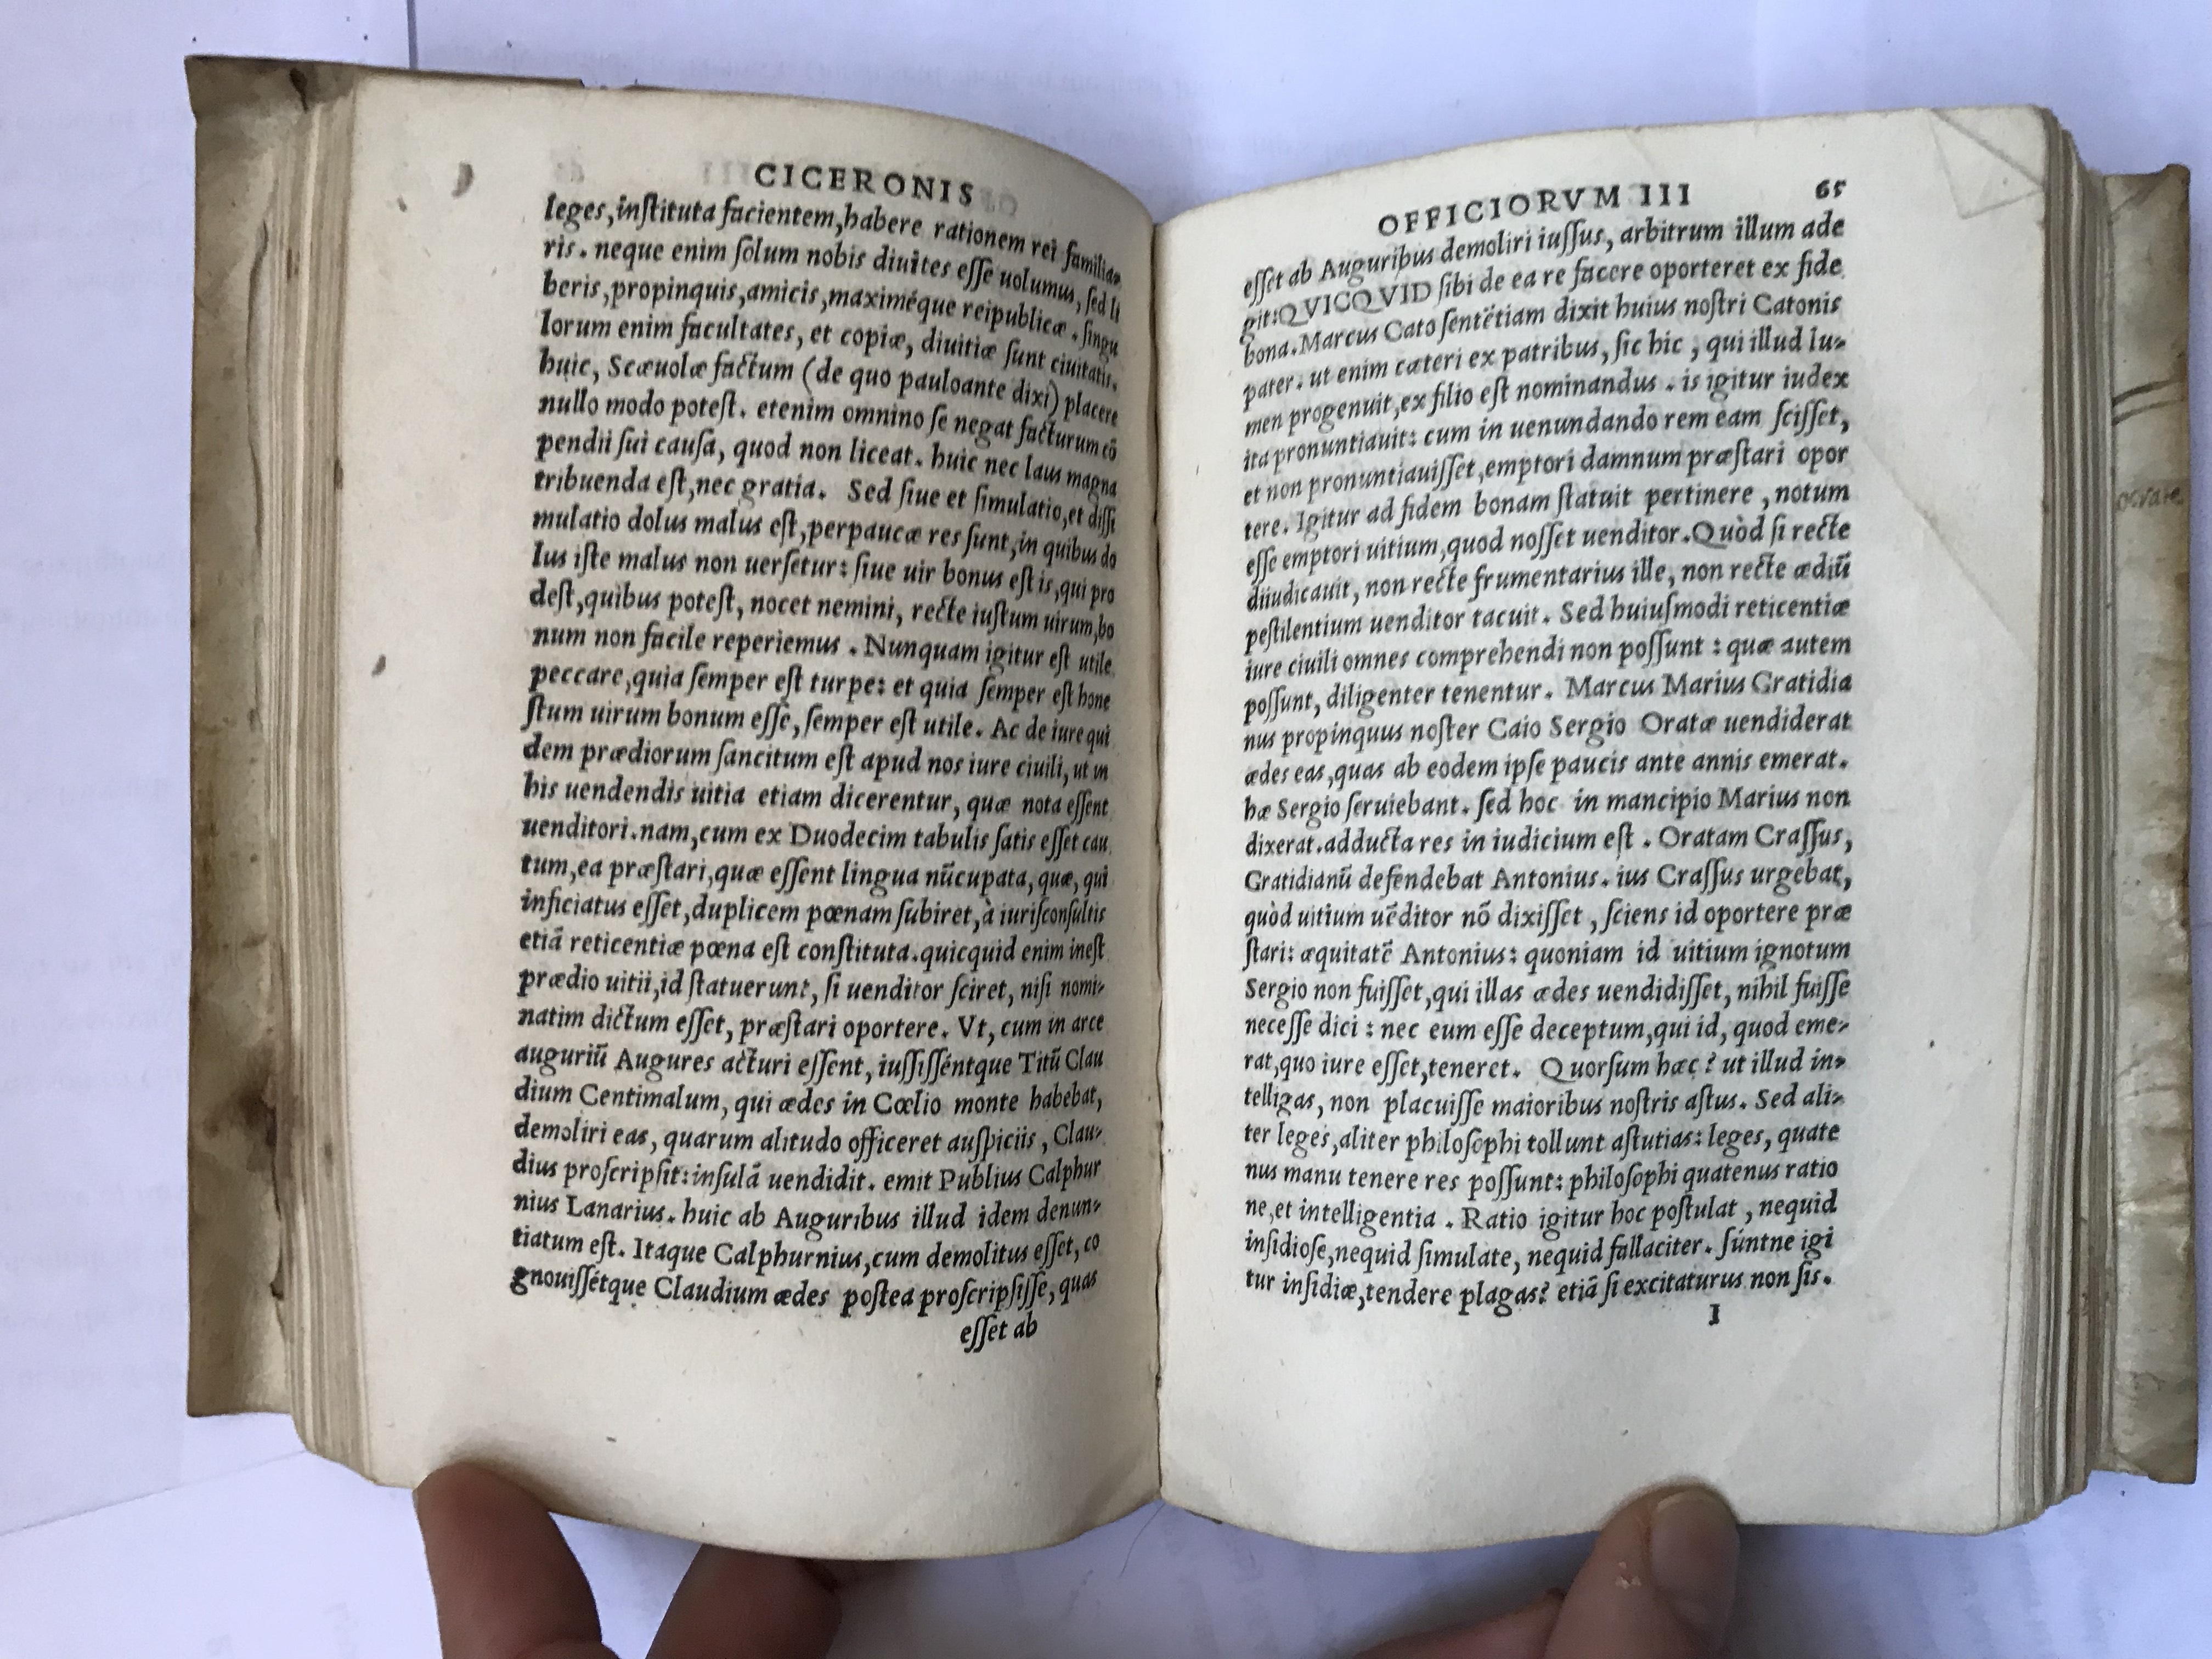 CICERONIS
leges,inſtituta facientem,habere rationem rei familia-
ris. neque enim ſolum nobis diuites eſſe uolumus, ſed li
beris,propinquis,amicis,maximéque reipublicæ. ſingu
lorum enim facultates, et copiæ, diuitiæ ſunt ciuitatis.
huic, Scæuolæ factum (de quo pauloante dixi) placere
nullo modo poteſt. etenim omnino ſe negat facturum cō
pendii ſui cauſa, quod non liceat. huic nec laus magna
tribuenda eſt,nec gratia. Sed ſiue et ſimulatio,et diſſi
mulatio dolus malus eſt,perpaucæ res ſunt,in quibus do
lus iſte malus non uerſetur: ſiue uir bonus eſt is,qui pro
deſt,quibus poteſt, nocet nemini, recte iuſtum uirum,bo
num non facile reperiemus. Nunquam igitur eſt utile
peccare,quia ſemper eſt turpe: et quia ſemper eſt hone
ſtum uirum bonum eſſe, ſemper eſt utile. Ac de iure qui
dem prædiorum ſancitum eſt apud nos iure ciuili, ut in
his uendendis uitia etiam dicerentur, quæ nota eſſent
uenditori.nam,cum ex Duodecim tabulis ſatis eſſet cau
tum,ea præſtari,quæ eſſent lingua nūcupata, quæ, qui
inficiatus eſſet,duplicem pœnam ſubiret,à iuriſconſultis
etiā reticentiæ pœna eſt conſtituta.quicquid enim ineſt
prædio uitii,id ſtatuerunt, ſi uenditor ſciret, niſi nomi-
natim dictum eſſet, præſtari oportere. Vt, cum in arce
auguriū Augures acturi eſſent, iuſſiſſéntque Titū Clau
dium Centimalum, qui ædes in Cœlio monte habebat,
demoliri eas, quarum alitudo officeret auſpiciis, Clau-
dius proſcripſit:inſulā uendidit. emit Publius Calphur
nius Lanarius. huic ab Auguribus illud idem denun-
tiatum eſt. Itaque Calphurnius,cum demolitus eſſet, co
gnouiſſétque Claudium ædes poſtea proſcripſiſſe, quas
eſſet ab
OFFICIORVM III 65
eſſet ab Auguribus demoliri iuſſus, arbitrum illum ade
git:QVICQVID ſibi de ea re facere oporteret ex fide
bona.Marcus Cato ſentētiam dixit huius noſtri Catonis
pater. ut enim cæteri ex patribus, ſic hic, qui illud lu-
men progenuit,ex filio eſt nominandus. is igitur iudex
ita pronuntiauit: cum in uenundando rem eam ſciſſet,
et non pronuntiauiſſet,emptori damnum præſtari opor
tere. Igitur ad fidem bonam ſtatuit pertinere, notum
eſſe emptori uitium,quod noſſet uenditor.Quòd ſi recte
diiudicauit, non recte frumentarius ille, non recte ædiū
peſtilentium uenditor tacuit. Sed huiuſmodi reticentiæ
iure ciuili omnes comprehendi non poſſunt: quæ autem
poſſunt, diligenter tenentur. Marcus Marius Gratidia
nus propinquus noſter Caio Sergio Oratæ uendiderat
ædes eas,quas ab eodem ipſe paucis ante annis emerat.
hæ Sergio ſeruiebant. ſed hoc in mancipio Marius non
dixerat.adducta res in iudicium eſt. Oratam Craſſus,
Gratidianū defendebat Antonius. ius Craſſus urgebat,
quòd uitium uēditor nō dixiſſet, ſciens id oportere præ
ſtari: æquitatē Antonius: quoniam id uitium ignotum
Sergio non fuiſſet,qui illas ædes uendidiſſet, nihil fuiſſe
neceſſe dici: nec eum eſſe deceptum,qui id, quod eme-
rat,quo iure eſſet,teneret. Quorſum hæc? ut illud in-
telligas, non placuiſſe maioribus noſtris aſtus. Sed ali-
ter leges,aliter philoſophi tollunt aſtutias: leges, quate
nus manu tenere res poſſunt: philoſophi quatenus ratio
ne,et intelligentia. Ratio igitur hoc poſtulat, nequid
inſidioſe,nequid ſimulate, nequid fallaciter. ſúntne igi
tur inſidiæ,tendere plagas? etiā ſi excitaturus non ſis.
I